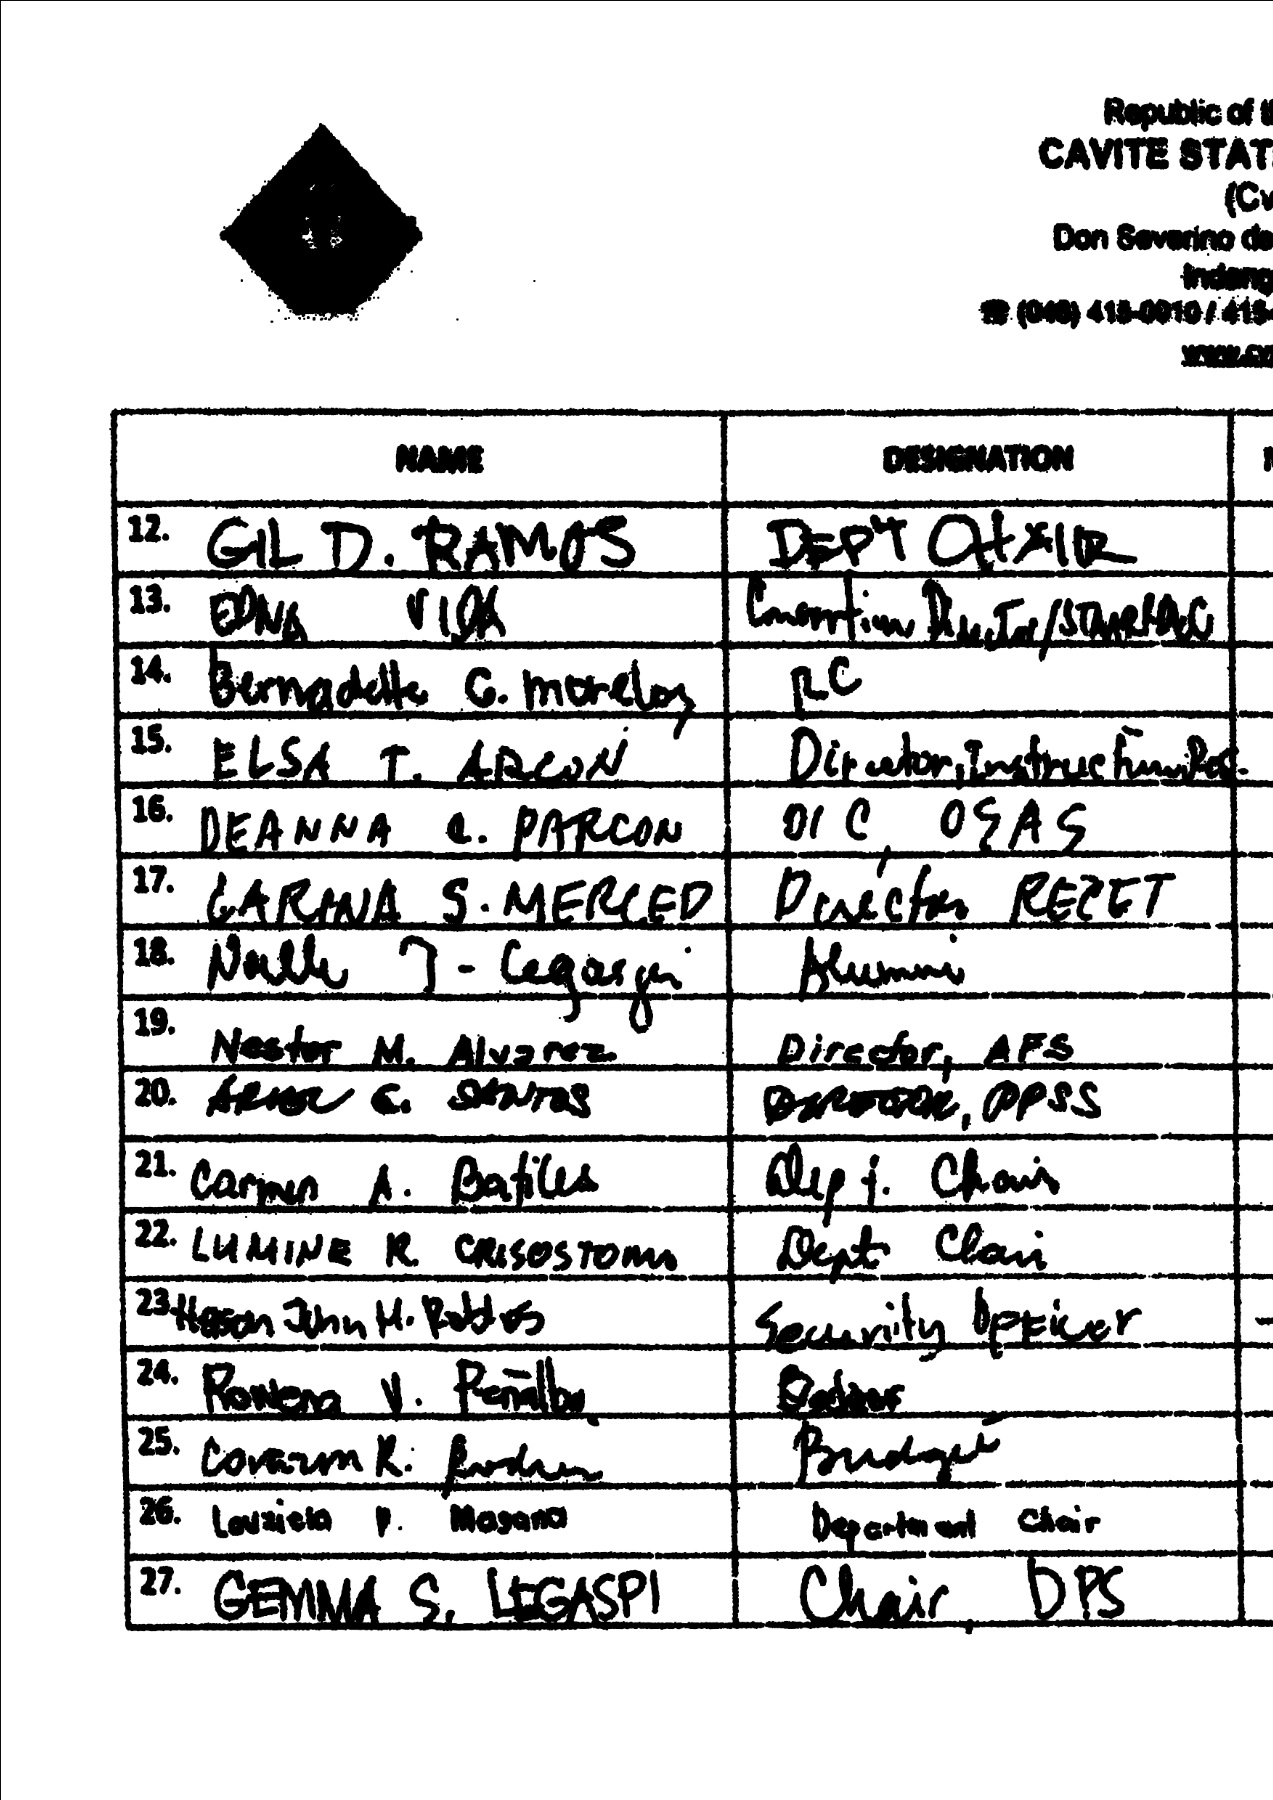 Republic of
CAVITE STAT
(Cv
Don Severino de
Indang
☎ (046) 415-0010 / 415-
www.cv
NAME DESIGNATION
12. GIL D. RAMOS DEPT CHAIR
13. EDNA VIDA Consortium Director/STAARRDEC
14. Bernadette G. morelos RC
15. ELSA T. ARCON Director, Instruction
16. DEANNA C. PARCON OIC, OSAS
17. S. MERCED Director RECET
18. Alumni
19. Nestor M. Alvarez Director, AFS
20. C. SANTOS DIRECTOR, PPSS
21. Carmen A. Batiles Dept. Chair
22. LUMINE R. CRISOSTOMO Dept Chair
23. John M. Robles Security Officer
24. Rowena V. Peñalba
25. Corazon R. Budget
26. P. Department Chair
27. GEMMA S. LEGASPI Chair DPS